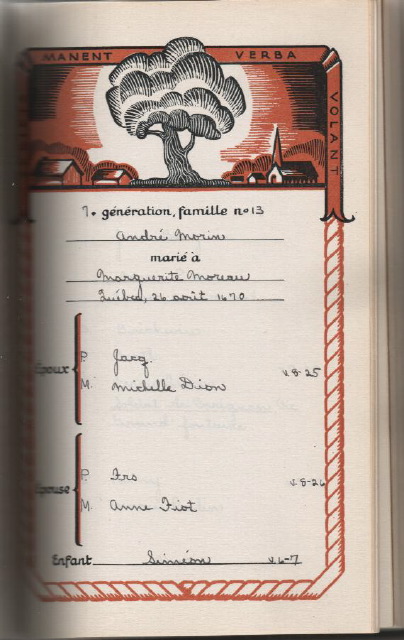 MANENT VERBA
VOLANT
7. génération, famille nº 13
André Morin
marié à
Marguerite Moreau
Québec, 26 août 1670
Époux
P. Jacq.
v. 8-25
M. Michelle Dion
Épouse
P. Frs
v. 8-26
M. Anne Fiot
Enfant Siméon v. 6-7